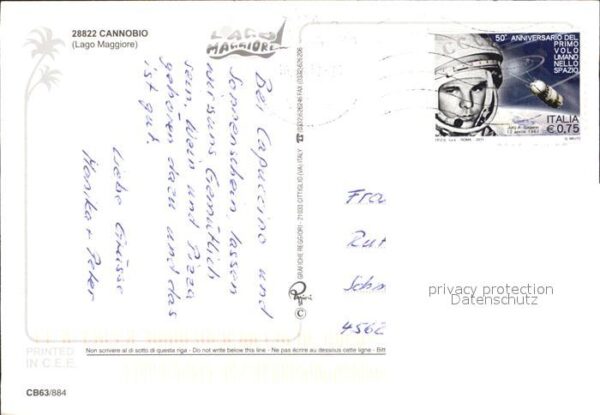 28822 CANNOBIO
(Lago Maggiore)
LAGO
MAGGIORE
50° ANNIVERSARIO DEL
PRIMO
VOLO
UMANO NELLO
SPAZIO
Jurij A. Gagarin
12 aprile 1961
ITALIA
€ 0,75
I.P.Z.S. S.p.A. - ROMA - 2011
Bei Capuccino und
Sonnenschein, lassen
wir's uns Gemütlich
sein, Wein und Pizza
gehören dazu und das
ist gut.
Liebe Grüsse
Monika + Peter
GRAFICHE REGGIORI - 21033 CITTIGLIO (VA) ITALY
Fra
Rut
Schm
4562
privacy protection
Datenschutz
PRINTED
IN C.E.E.
Non scrivere al di sotto di questa riga - Do not write below this line - Ne pas écrire au dessous cette ligne - Bitt
CB63/884